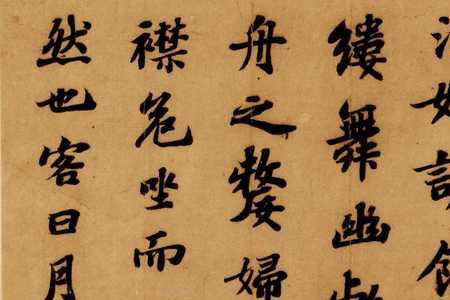 泣如訴餘
縷舞幽壑
舟之嫠婦
襟危坐而
然也客曰月